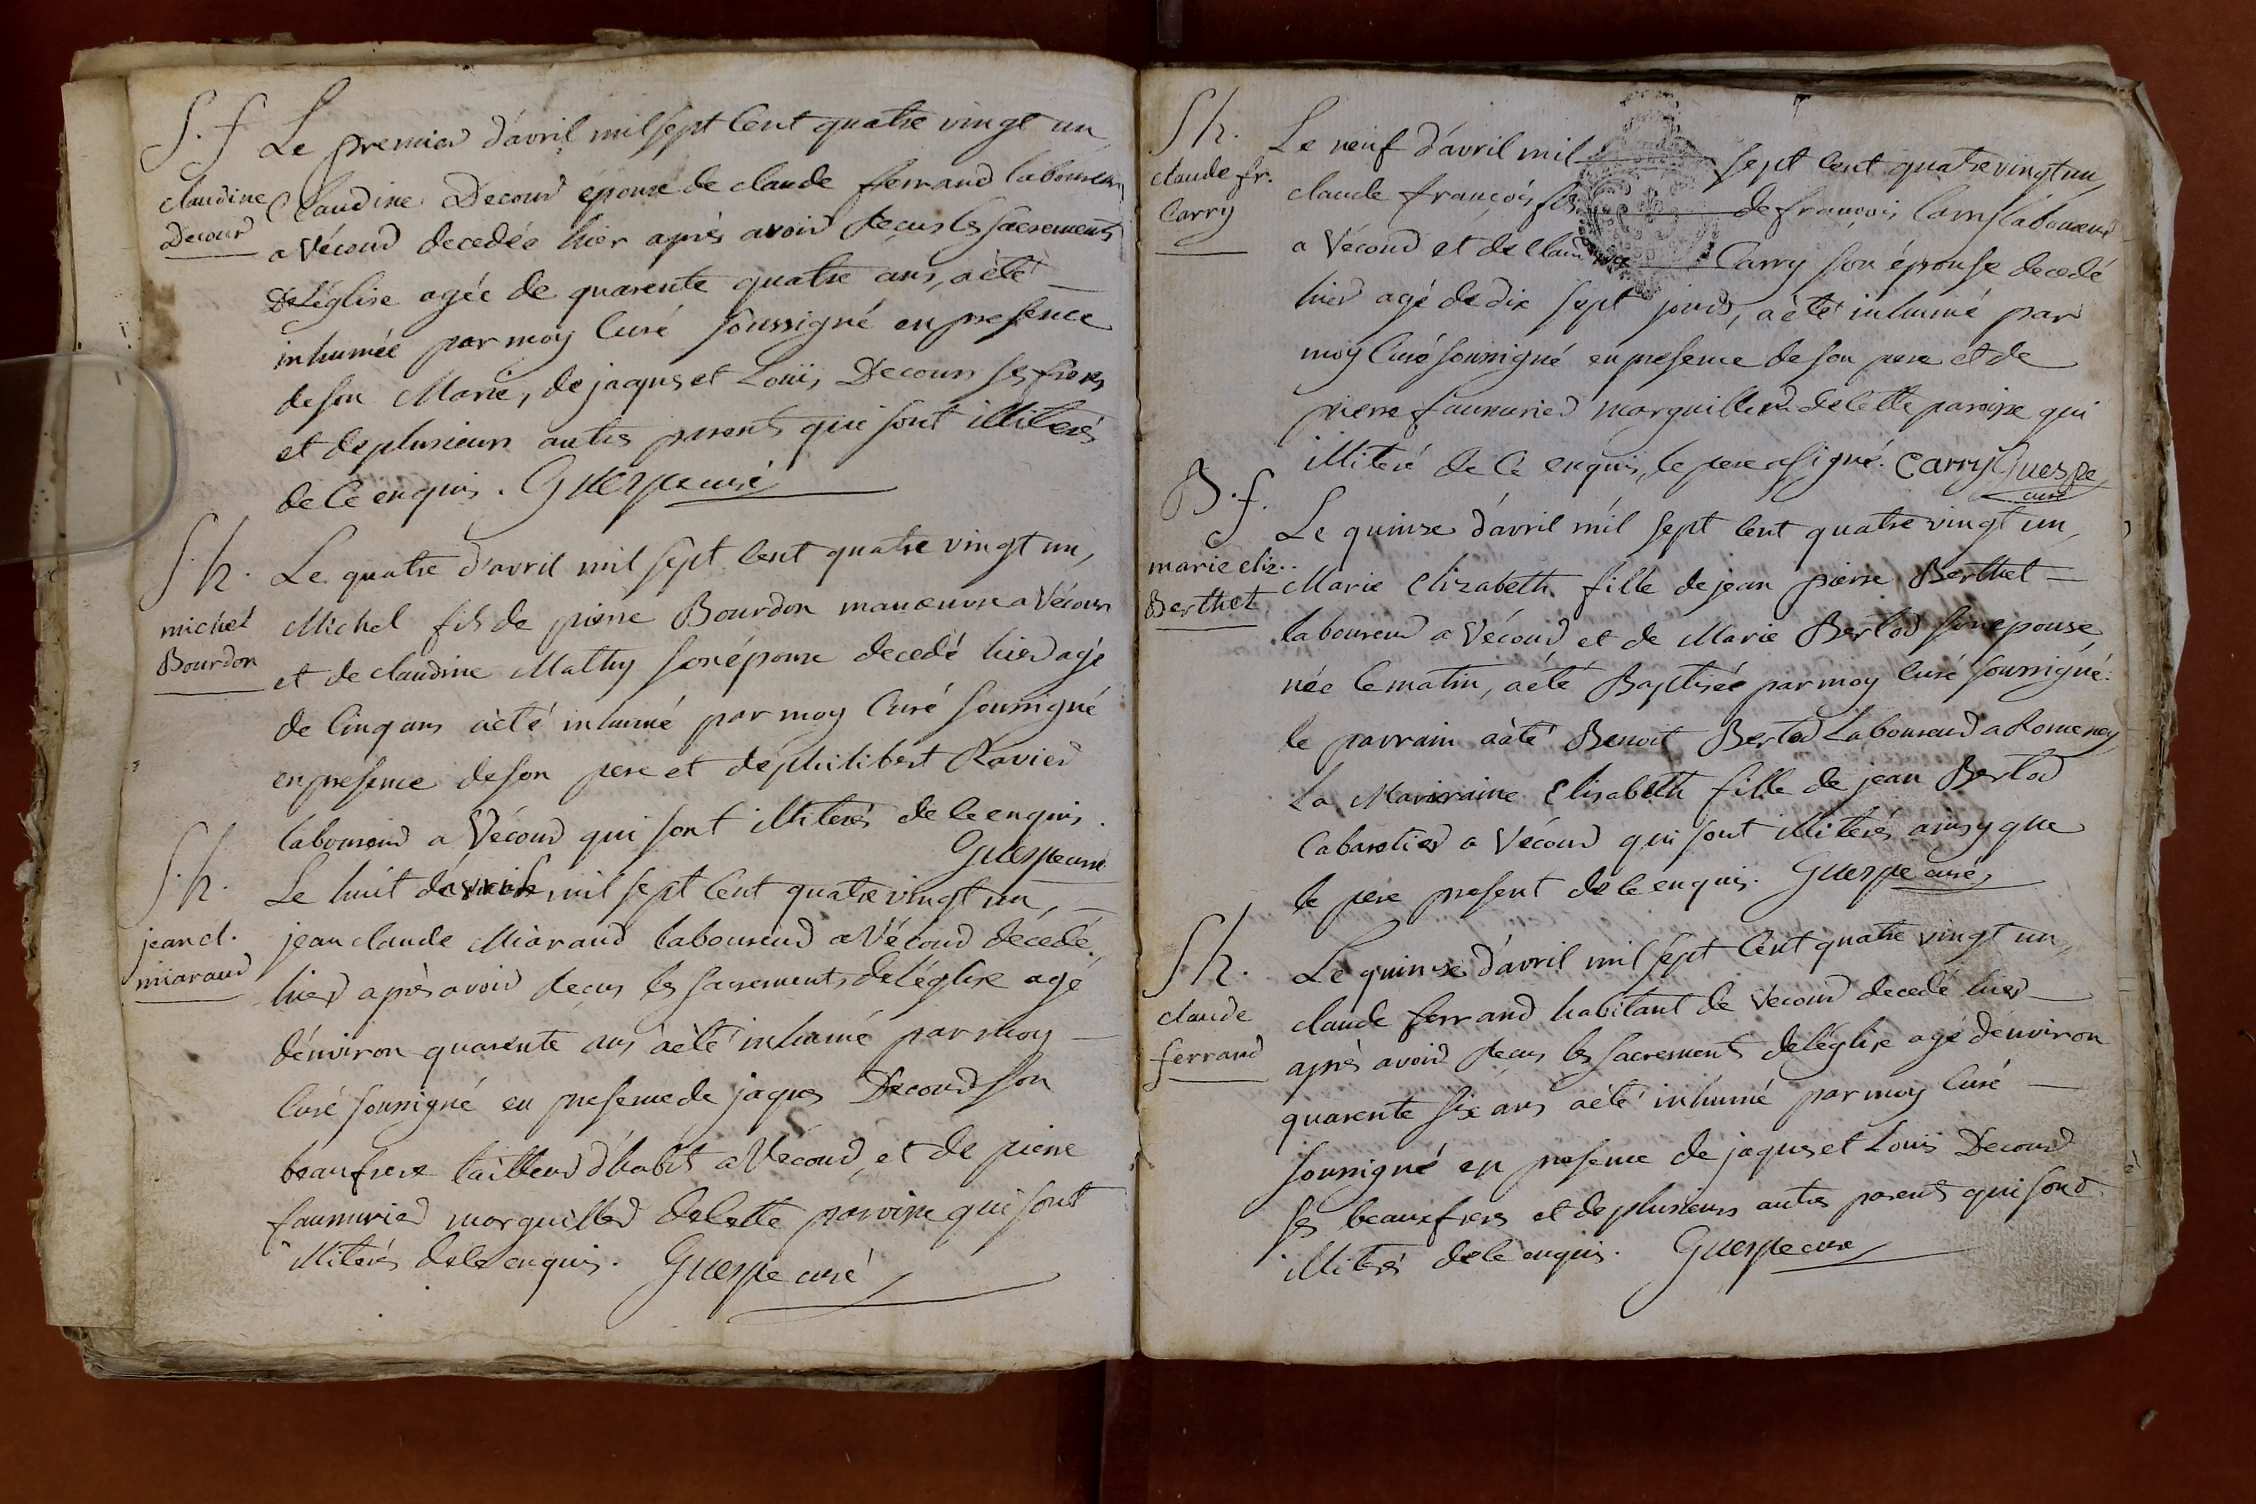 S. f Le premier d'avril mil sept cent quatre vingt un
claudine Claudine Decour épouse de claude ferrand laboureur
Decour a Vécour decedée hier après avoir recus les sacrements
De l'église agée de quarente quatre ans, a èté
inhumée par moy Curé soussigné en presence
de son Marie, de jaques et Louis Decour ses freres
et de plusieurs autres parents qui sont illiterés
de ce enquis. Guerpe curé
S. h. Le quatre d'avril mil sept cent quatre vingt un,
michel Michel fils de pierre Bourdon manœuvre a Vécour
Bourdon et de claudine Mathy son épouse decedé hier agé
de Cinq ans a èté inhumé par moy Curé soussigné
en presence de son pere et de philibert Ravier
laboureur a Vécour qui sont illiterés de ce enquis.
Guerpe curé
S. h. Le huit d'avril mil sept cent quatre vingt un,
jean cl. jean claude Miaraud laboureur a Vécour décedé
miaraud hier après avoir recus les sacrements de l'église agé
d'environ quarente ans a èté inhumé par moy
Curé soussigné en presence de jaques Decour son
beaufrere tailleur d'habits a Vécour et de pierre
faumurier marguiller de cette paroisse qui sont
illiterés de ce enquis. Guerpe curé
S h. Le neuf d'avril mil sept cent quatre vingt un
claude fr. claude françois fils de francois Carry laboureur
Carry a Vécour et de Claudine Carry son épouse decedé
hier agé de dix sept jours, a èté inhumé par
moy Curé soussigné en presence de son pere et de
pierre faumurier marguiller de cette paroisse qui
illiteré de ce enquis, le pere a signé. Carry Guespe
curé
B. f. Le quinze d'avril mil sept cent quatre vingt un,
marie eliz. Marie Elizabeth fille de jean pierre Berthet
Berthet laboureur a Vécour et de Marie Bertod son epouse
née ce matin, a été Baptisée par moy curé soussigné.
le parrain a èté Benoit Bertod Laboureur a Romenay
La Marraine Elisabeth fille de jean Bertod
Cabaretier a Vécour qui sont illiterés ainsy que
le pere present de ce enquis. Guerpe curé
S. h. Le quinse d'avril mil sept cent quatre vingt un,
claude claude ferrand habitant de Vecour decedé hier
ferrand après avoir recus les sacrements de l'église agé d'environ
quarente six ans a èté inhumé par moy Curé
soussigné en presence de jaques et Louis Decour
ses beauxfreres et de plusieurs autres parents qui sont
illiterés de ce enquis. Guerpe curé